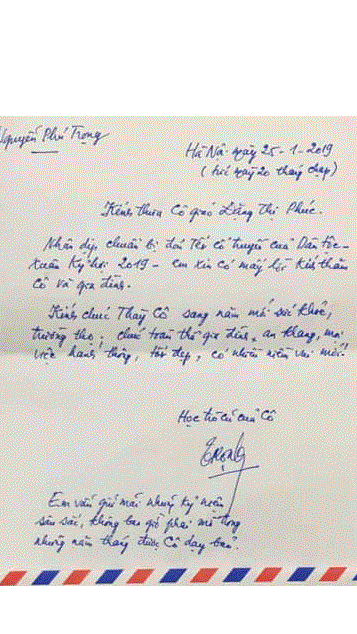 Nguyễn Phú Trọng
Hà Nội ngày 25-1-2019
(tức ngày 20 tháng chạp)
Kính thưa Cô giáo Đặng Thị Phúc.
Nhân dịp chuẩn bị đón Tết cổ truyền của Dân tộc -
Xuân Kỷ Hợi 2019 - em xin có mấy lời kính thăm
Cô và gia đình.
Kính chúc Thầy Cô sang năm mới sức khỏe,
trường thọ; chúc toàn thể gia đình an khang, mọi
việc hanh thông, tốt đẹp, có nhiều niềm vui mới.
Học trò cũ của Cô
Trọng
Em vẫn giữ mãi những kỷ niệm
sâu sắc, không bao giờ phai mờ trong
những năm tháng được Cô dạy bảo.